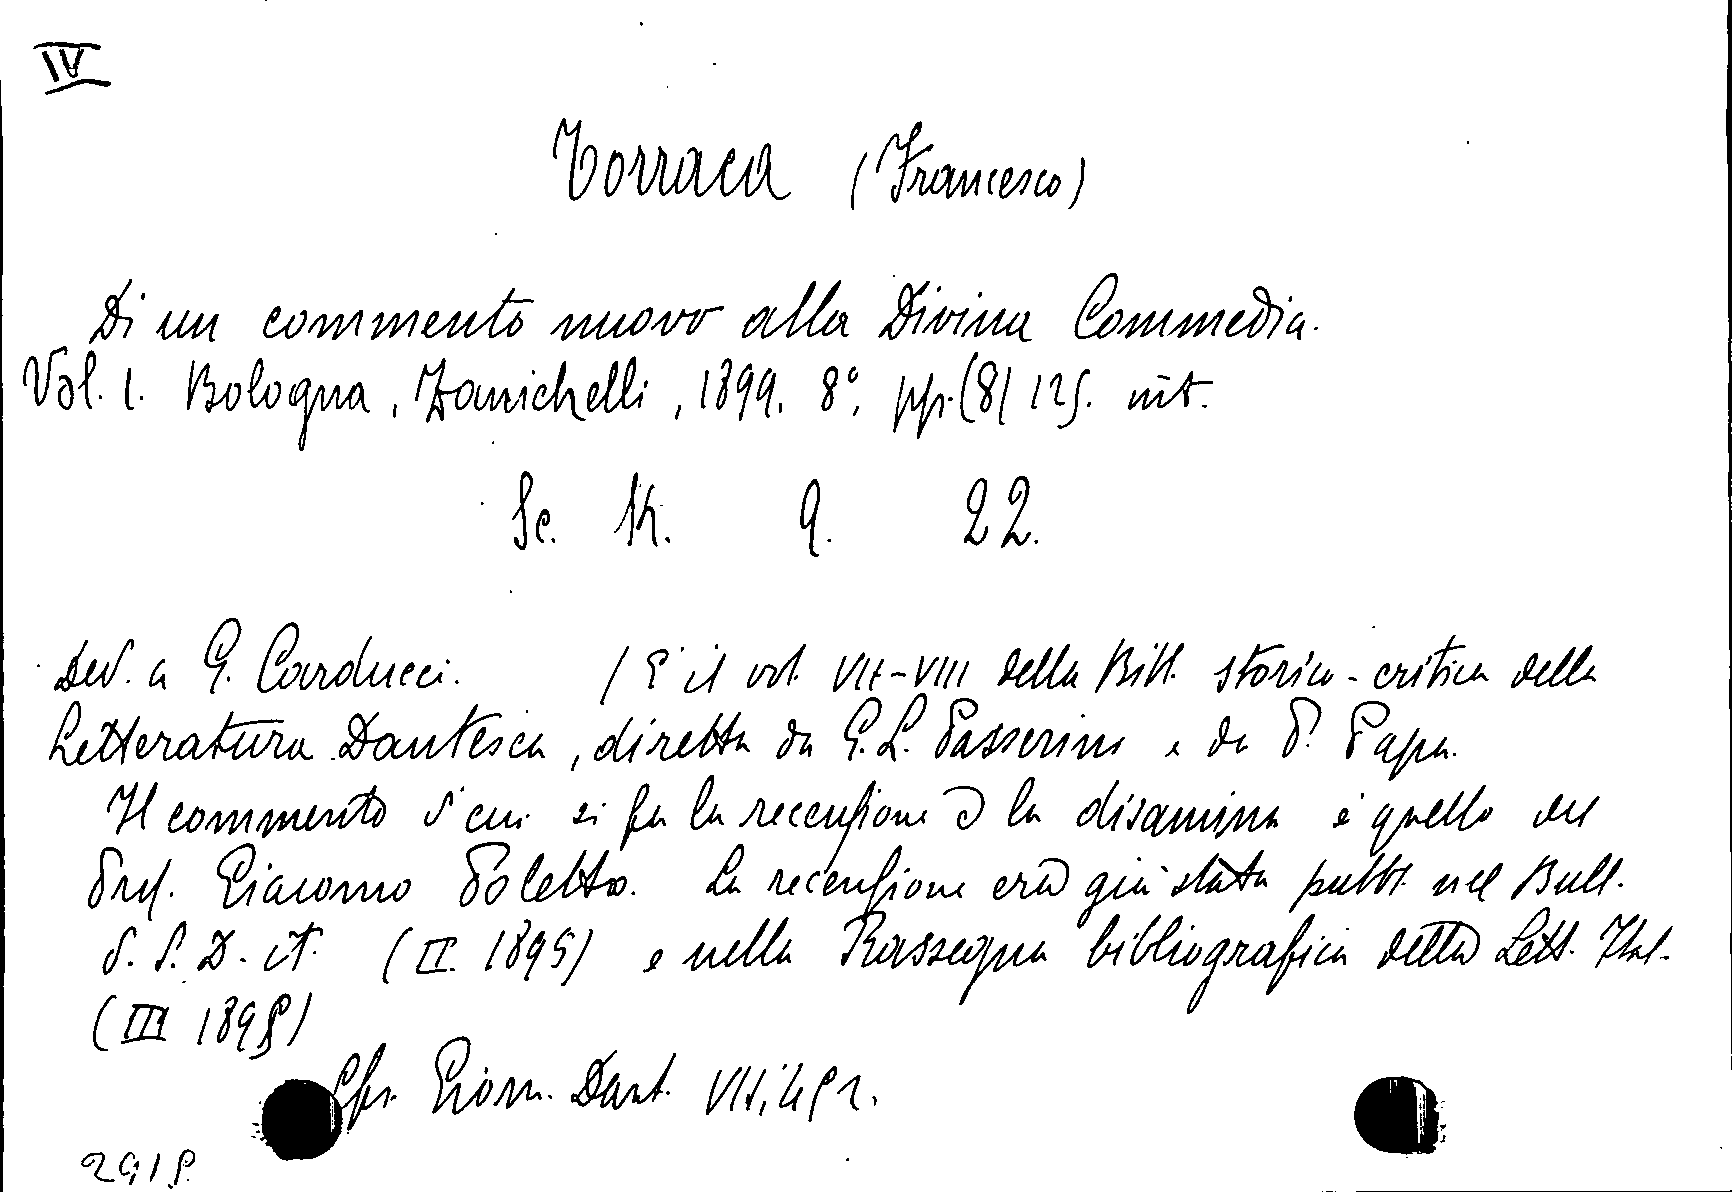 IV
Torraca (Francesco)
Di un commento nuovo alla Divina Commedia.
Vol. 1. Bologna, Zanichelli, 1899. 8°. pp. (8) 125. int.
Sc. K. 9. 22.
Ded. a G. Carducci. / È il vol. VII-VIII della Bibl. storico-critica della
Letteratura Dantesca, diretta da G. L. Passerini e da P. Papa.
Il commento d cui si fa la recensione e la disamina è quello del
Prof. Giacomo Poletto. La recensione era già stata pubbl. nel Bull.
d. S. D. it. (II. 1895) e nella Rassegna bibliografica della Lett. Ital.
(III 1895)
Cfr. Giorn. Dant. VII,